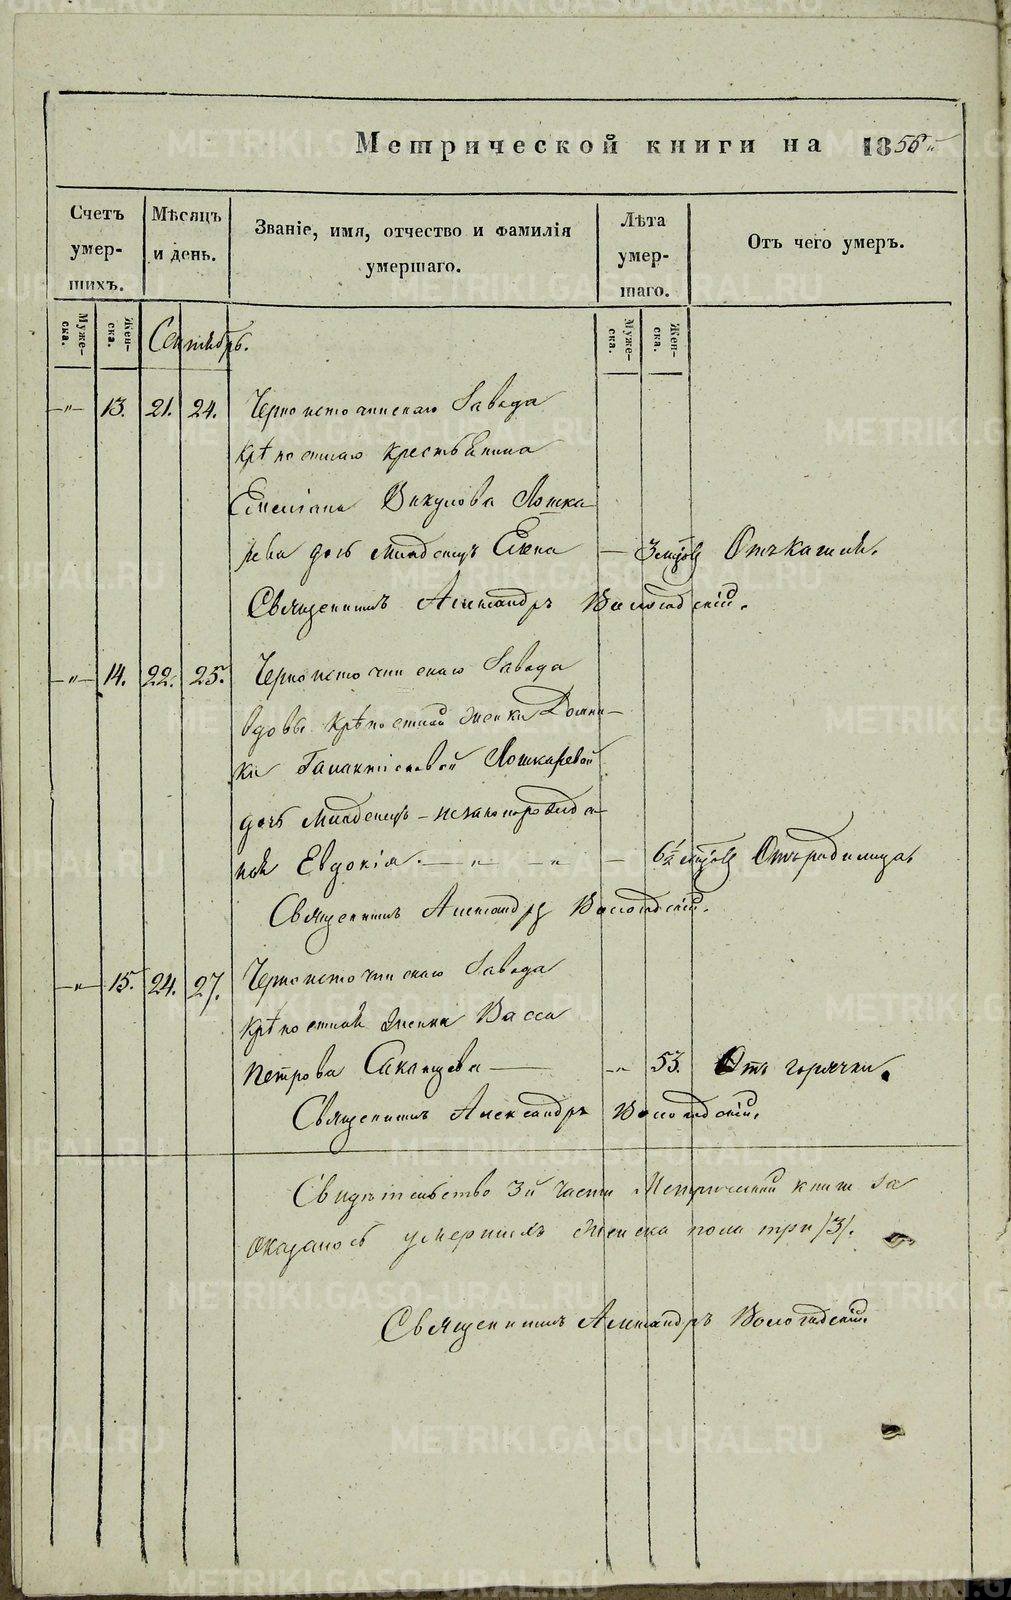 Метрической книги на 1858й
Счетъ умер-шихъ.
Мѣсяцъ и день.
Званіе, имя, отчество и фамилія умершаго.
Лѣта умер-шаго.
Отъ чего умеръ.
Муже-ска.
Жен-ска.
Сентябрь.
Муже-ска.
Жен-ска.
—„— 13. 21. 24. Черноисточинскаго Завода
крѣпостнаго крестьянина
Емелiана Викулова Лошка-
рева дочь младенецъ Елена — 3 мѣсяц Отъ кашля.
Священникъ Александръ Вологодскій.
—„— 14. 22. 25. Черноисточинскаго Завода
вдовы крѣпостной женки Домни-
ки Галактіоновой Лошкаревой
дочь младенецъ – незаконорожден-
ной Евдокія. — „ — „ — 6½ мѣсяц Отъ родимца.
Священникъ Александръ Вологодскій.
—„— 15. 24. 27. Черноисточинскаго Завода
крѣпостной женка Васса
Петрова — „ 53. Отъ горячки.
Священникъ Александръ Вологодскій.
Свидѣтельство 3й части Метрической книги
Оказалось умершихъ женска пола три /3/.
Священникъ Александръ Вологодскій.
METRIKI.GASO-URAL.RU